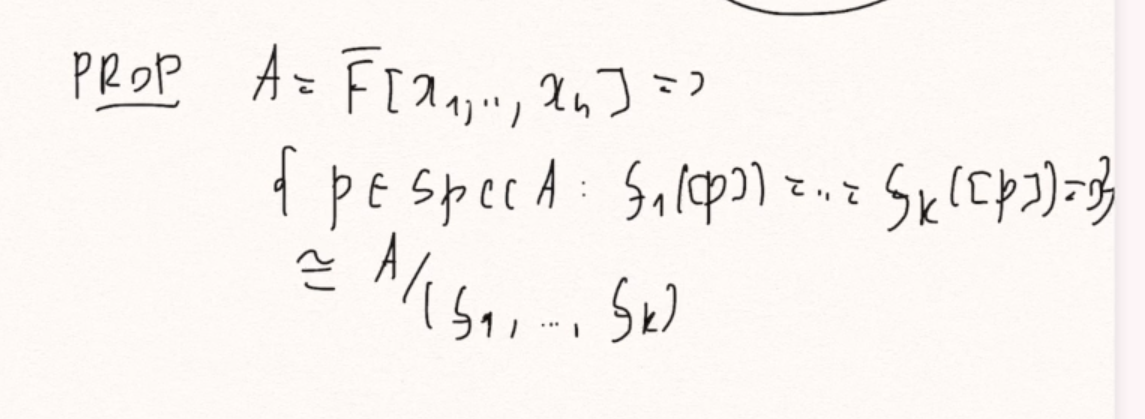 PROP A = F̅[x₁,..,xₙ] =>
{ p ∈ Spec A : f₁([p]) = .. = fₖ([p]) = 0}
≅ A/(f₁, ..., fₖ)